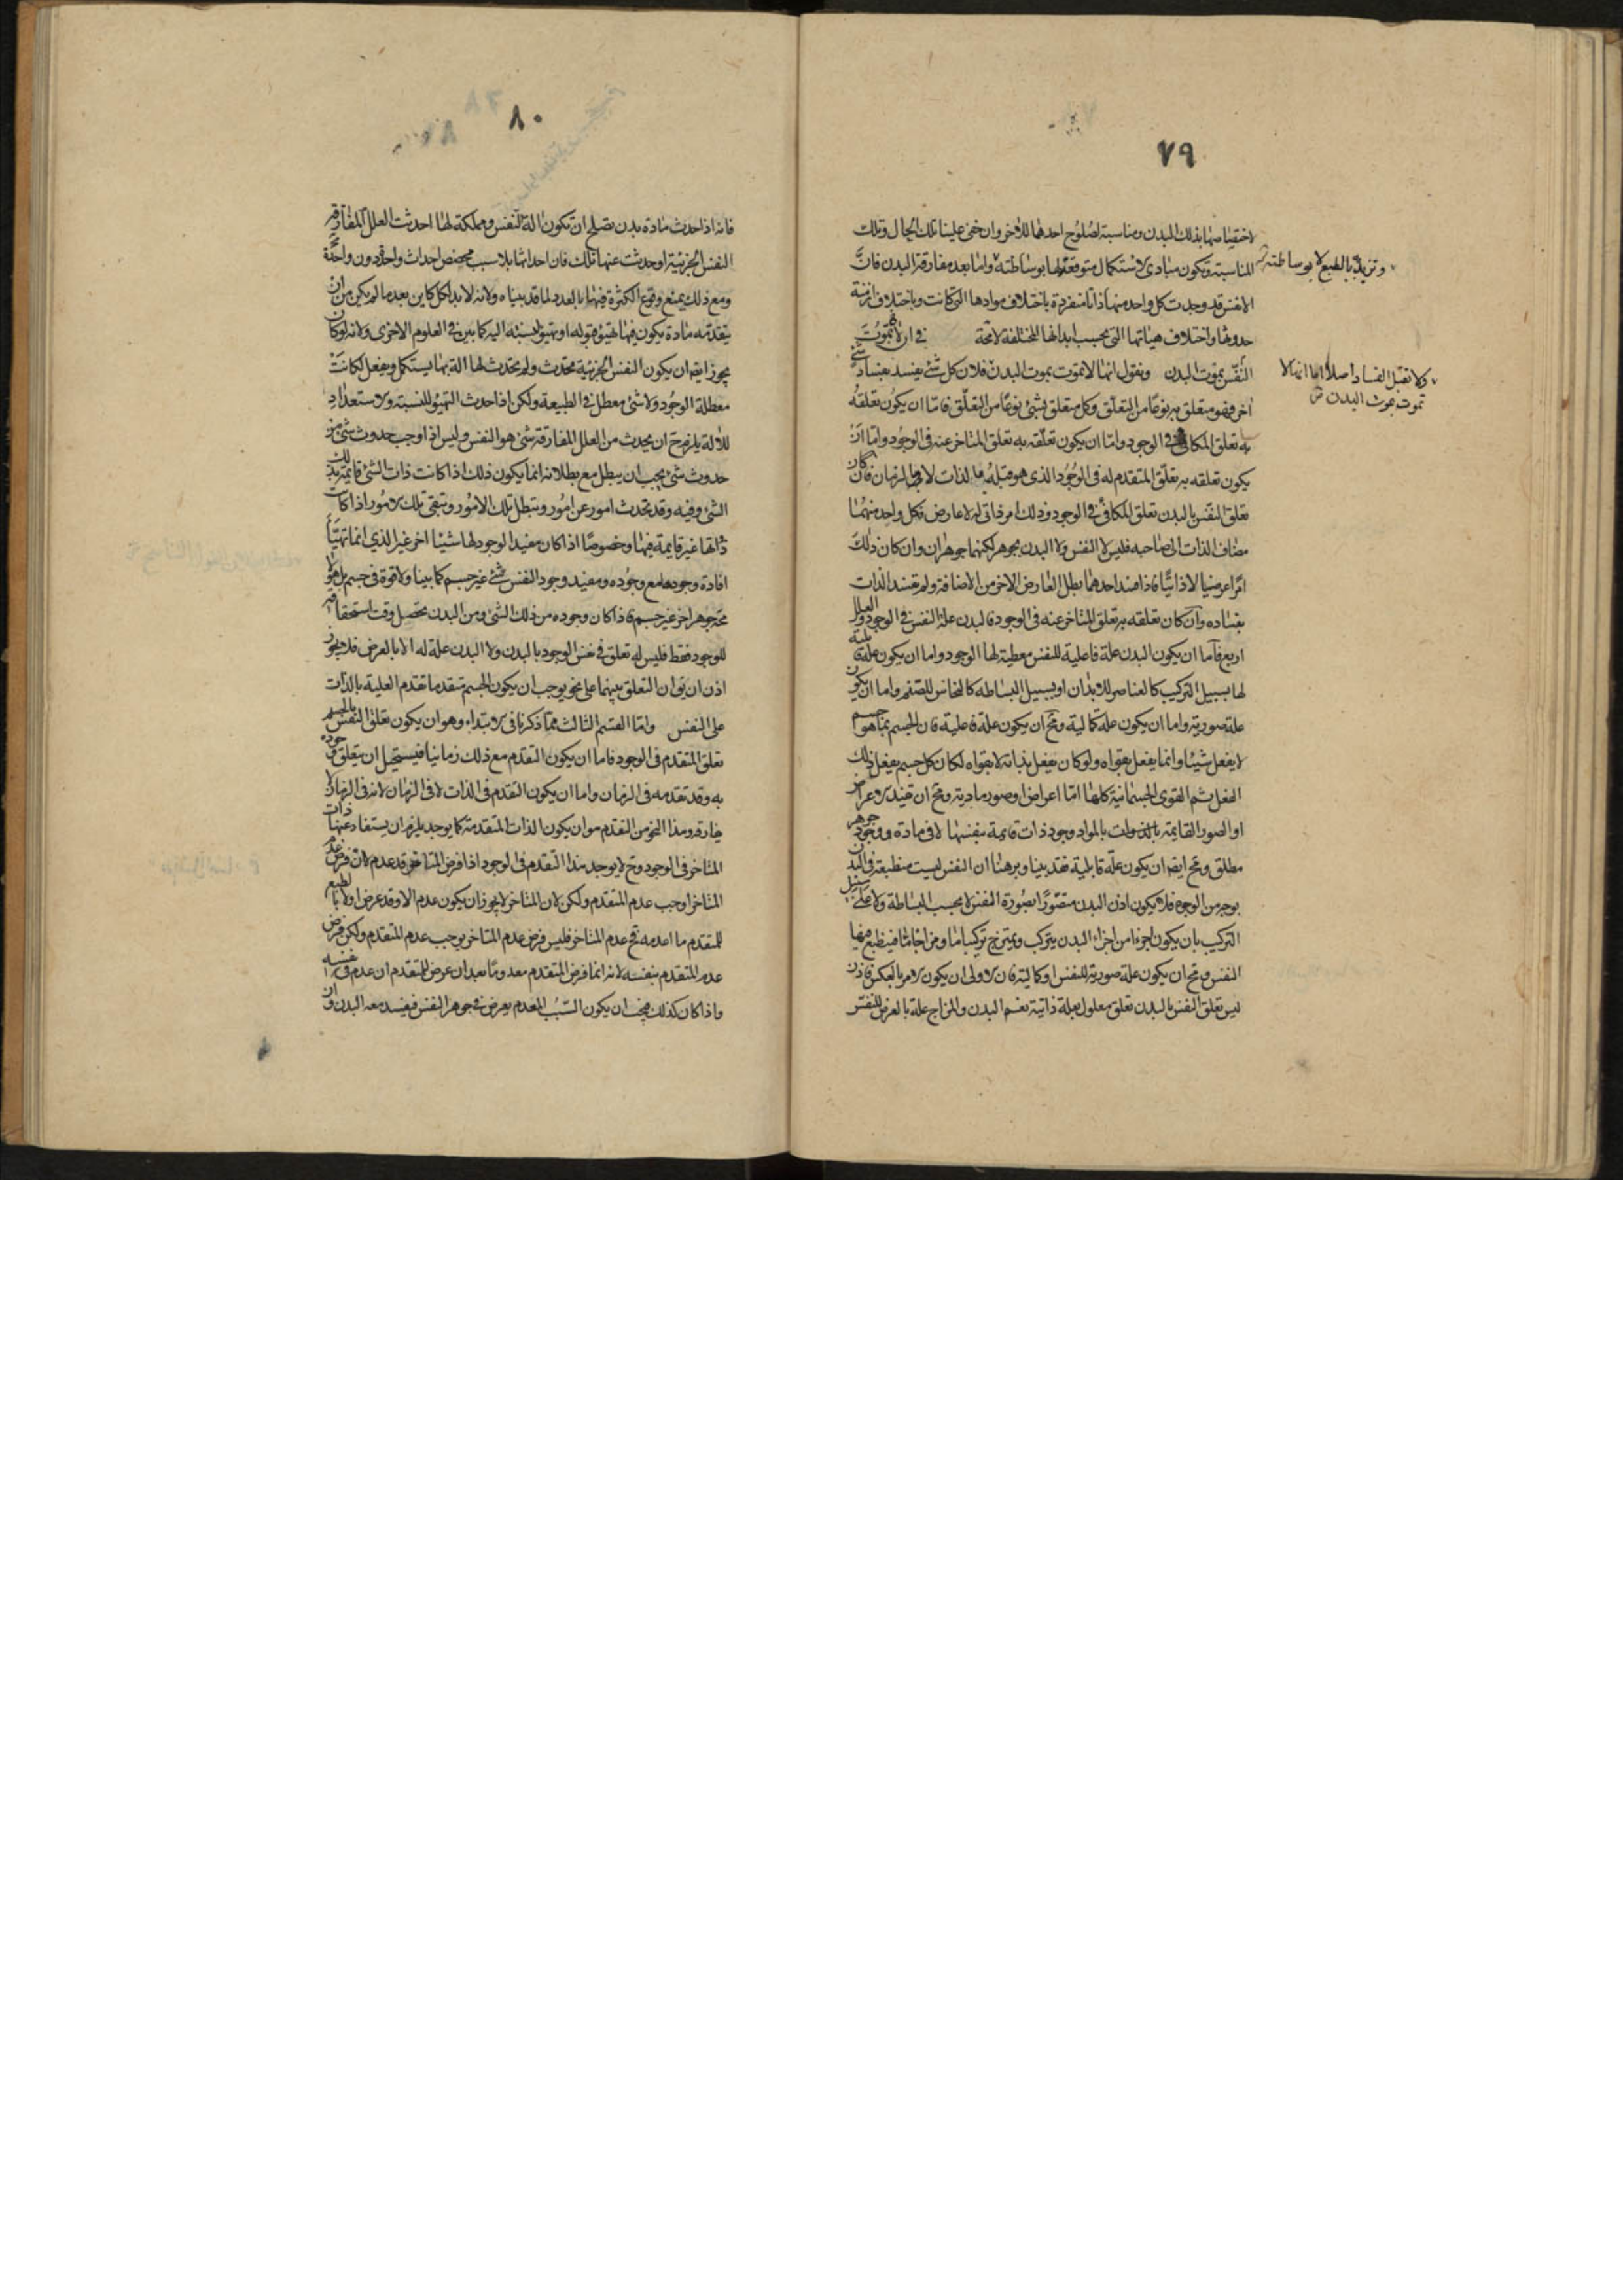 ٧٩
لاختصاصها بذلك البدن ومناسبة لصلوح احدهما للاخر وان خفى علينا تلك الحال وتلك
المناسبة وتكون مبادى الاستكمال متوقعة لها بوساطته واما بعد مفارقة البدن فان
وتزيد به بالطبع لا بوساطته
الانفس قد وجدت كل واحد منها ذاتا منفردة باختلاف موادها التى كانت وباختلاف ازمنة
حدوثها واختلاف هيئاتها التى بحسب ابدانها المختلفة لامحة فى ان لا تموت
النفس بموت البدن ونقول انها لا تموت بموت البدن فلان كل شئ يفسد بفساد شئ
ولا تقبل الفساد اصلا اما انها لا
تموت بموت البدن
اخر فهو متعلق به نوعا من التعلق وكل متعلق بشئ نوعا من التعلق فاما ان يكون تعلقه
به تعلق المكافى فى الوجود واما ان يكون تعلقه به تعلق المتاخر عنه فى الوجود واما ان
يكون تعلقه به تعلق المتقدم له فى الوجود الذى هو قبله بالذات لا بالزمان فان كان
تعلق النفس بالبدن تعلق المكافئ فى الوجود وذلك امر ذاتى له لا عارض فكل واحد منهما
مضاف الذات الى صاحبه فليس لا النفس ولا البدن بجوهر لكنهما جوهران وان كان ذلك
امرا عرضيا لا ذاتيا فاذا فسد احدهما بطل العارض الاخر من الاضافة ولم تفسد الذات
بفساده وان كان تعلقه به تعلق المتاخر عنه فى الوجود فالبدن علة النفس فى الوجود والعلل
اربع فاما ان يكون البدن علة فاعلية للنفس معطية لها الوجود واما ان يكون علة قابلية
لها بسبيل التركيب كالعناصر للابدان او بسبيل البساطه كالنحاس للصنم واما ان يكون
علة صورية واما ان يكون علة كمالية ومح ان يكون علة فاعلية فان الجسم بما هو جسم
لا يفعل شيئا وانما يفعل بقواه ولو كان يفعل بذاته لا بقواه لكان كل جسم يفعل ذلك
الفعل ثم القوى الجسمانية كلها اما اعراض او صور مادية ومح ان تفيد الاعراض
او الصور القائمة بالمواد وجود ذات قايمة بنفسها لا فى مادة ووجود جوهر
مطلق ومح ايضا ان يكون علة قابلية فقد بينا وبرهنا ان النفس ليست منطبعة فى البدن
بوجه من الوجوه فلا يكون اذن البدن متصورا بصورة النفس لا بحسب البساطة ولا على سبيل
التركيب بان يكون اجزءا من اجزاء البدن يتركب ويمتزج تركيبا ما ومزاجا ما فينطبع فيها
النفس ومح ان يكون علة صورية للنفس او كمالية فان الاولى ان يكون الامر بالعكس فاذن
ليس تعلق النفس بالبدن تعلق معلول بعلة ذاتية نعم البدن والمزاج علة بالعرض للنفس
٨٠
فانه اذا حدث مادة بدن يصلح ان تكون الة للنفس ومملكة لها احدثت العلل المفارقة
النفس الجزئية او حدثت عنها تلك فان احداثها بلا سبب مخصص احداث واحد دون واحد مح
ومع ذلك يمنع وقوع الكثرة فيها بالعدد لما قد بيناه ولانه لابد لكل كاين بعد ما لم يكن من ان
يتقدمه مادة يكون فيها تهيؤ قبوله او تهيؤ لنسبة اليه كما بين فى العلوم الاخرى ولانه لو كان
يجوز ايضا ان يكون النفس الجزئية تحدث ولم تحدث لها الة بها يستكمل ويفعل لكانت
معطلة الوجود ولا شئ معطل فى الطبيعة ولكن اذا حدث التهيؤ للنسبة والاستعداد
للآلة يلزم ح ان يحدث من العلل المفارقة شئ هو النفس وليس اذا وجب حدوث شئ من
حدوث شئ يجب ان يبطل مع بطلانه انما يكون ذلك اذا كانت ذات الشئ قايمة بذلك
الشئ وفيه وقد تحدث امور عن امور وتبطل تلك الامور وتبقى تلك الامور اذا كانت
ذاتها غير قايمة فيها وخصوصا اذا كان مفيد الوجود لها شيئا اخر غير الذى انما تهيأ
افادة وجودها مع وجوده ومفيد وجود النفس شئ غير جسم كما بينا ولا قوة فى جسم بل هو لا
محة جوهر اخر غير جسم فاذا كان وجوده من ذلك الشئ ومن البدن تحصل وقت استحقاقه
للوجود فقط فليس له تعلق فى نفس الوجود بالبدن ولا البدن علة له الا بالعرض فلا يجوز
اذن ان يق ان التعلق بينهما على نحو يوجب ان يكون الجسم متقدما تقدم العلية بالذات
على النفس واما القسم الثالث مما ذكرنا فى الابتداء وهو ان يكون تعلق النفس بالجسم
تعلق المتقدم فى الوجود فاما ان يكون التقدم مع ذلك زمانيا فيستحيل ان يتعلق وجوده
به وقد تقدمه فى الزمان واما ان يكون التقدم فى الذات لا فى الزمان لانه فى الزمان لا
يفارقه وهذا النحو من التقدم هو ان يكون الذات المتقدمة كما يوجد يلزم ان يستفاد عنها ذات
المتاخر فى الوجود وح لا يوجد هذا التقدم فى الوجود اذا فرض المتاخر قد عدم لا ان فرض عدم
المتاخر اوجب عدم المتقدم ولكن لان المتاخر لا يجوز ان يكون عدم الا وقد عرض اولا بالطبع
للمتقدم ما اعدمه فح عدم المتاخر فليس فرض عدم المتاخر يوجب عدم المتقدم ولكن فرض
عدم المتقدم بنفسه لانه انما فرض المتقدم معدوما بعد ان عرض للمتقدم ان عدم فى نفسه
واذا كان كذلك فيجب ان يكون السبب المعدم يعرض فى جوهر النفس فيفسد معه البدن وان